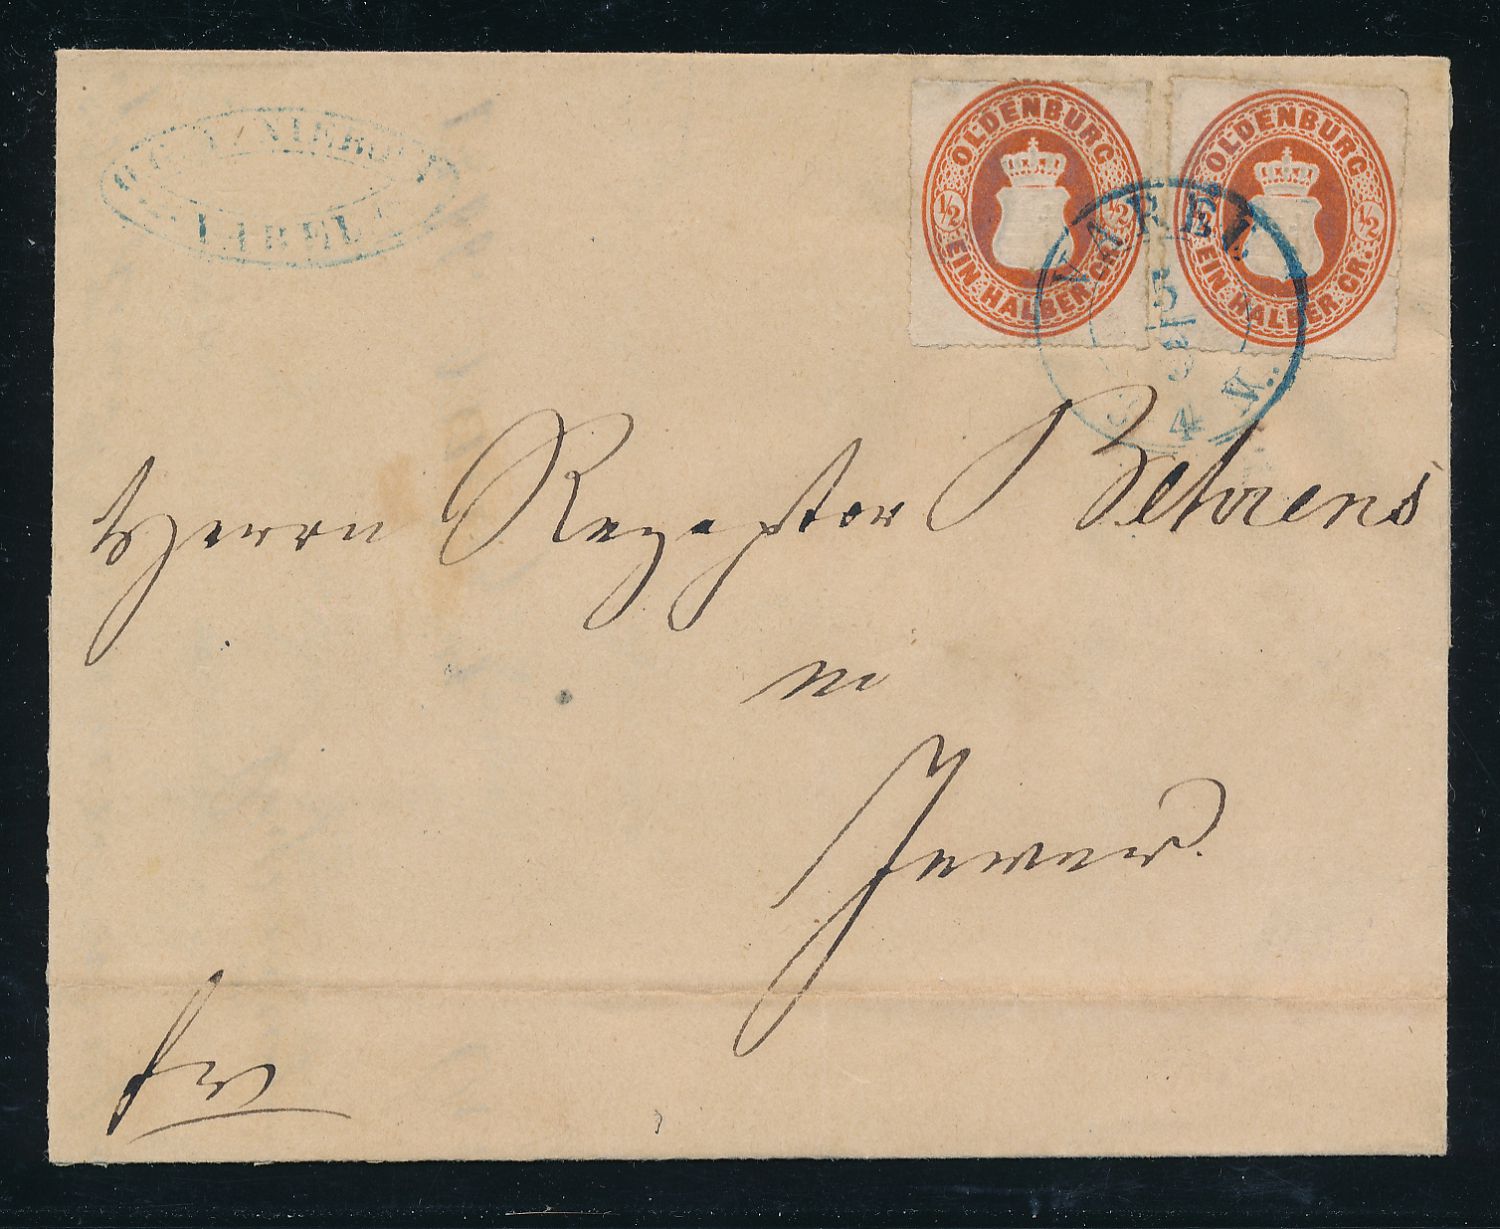 VAREL
OLDENBURG
½ ½
EIN HALBER GR.
OLDENBURG
½ ½
EIN HALBER GR.
VAREL
5
4
Herrn Rezeptor Behrens
in
Jever.
fr